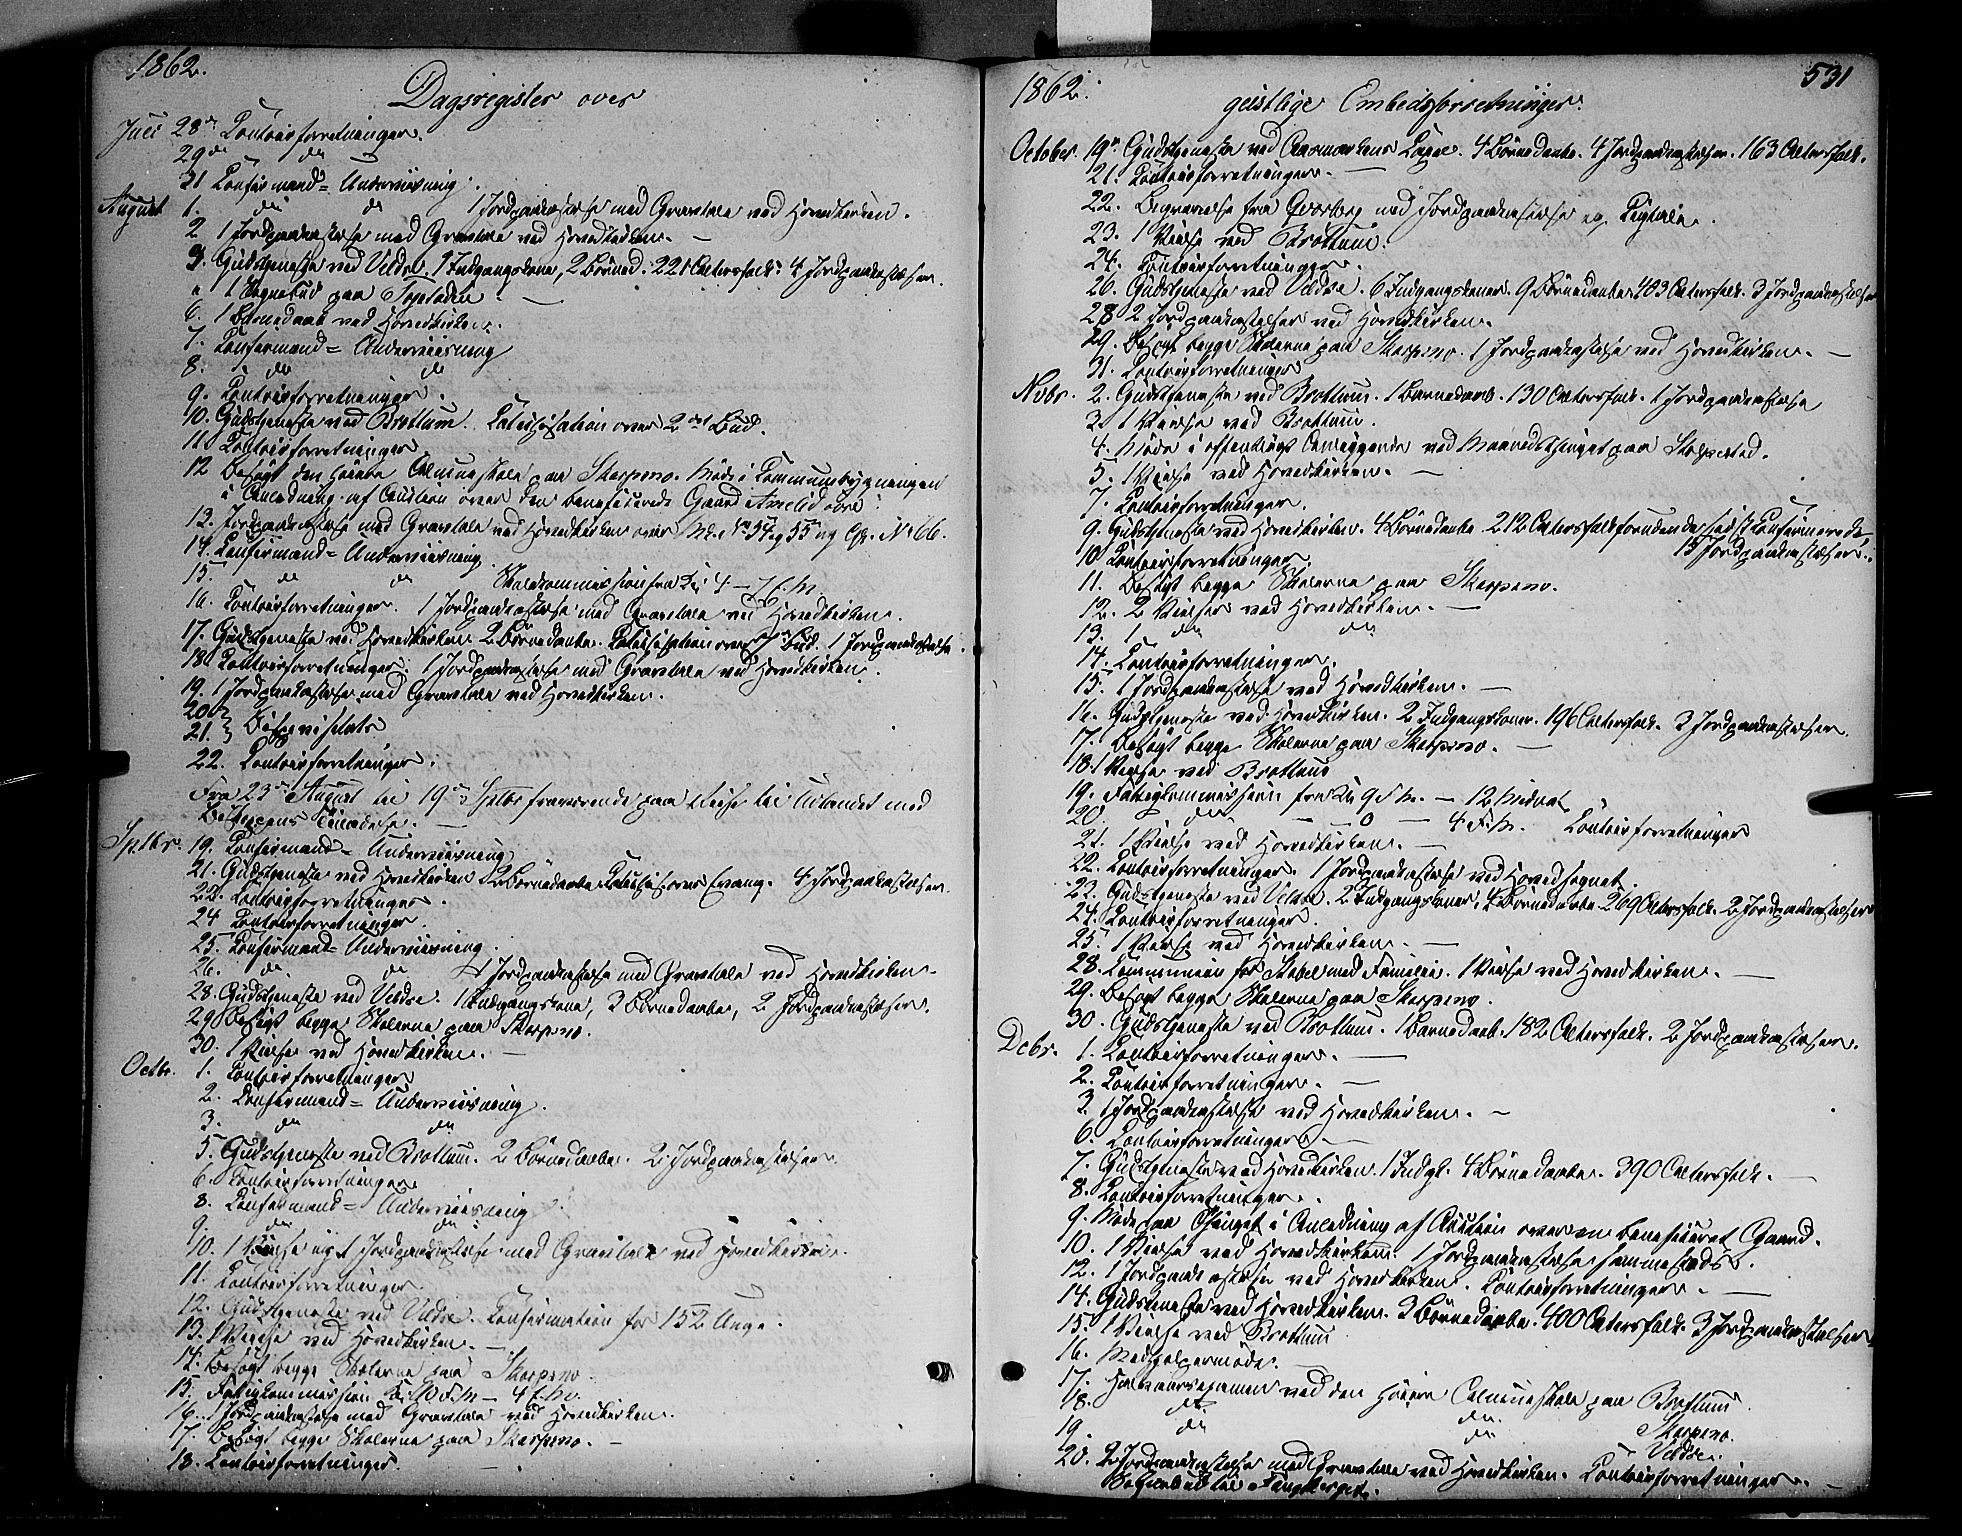 1862.
Dagsregister over
Juli 28de Contoirforretninger.
29de do
31 Confirmand=Underviisning.
August 1. do do 1 Jordpaakastelse med Gravtale ved Hovedkirken.
2 1 Jordpaakastelse med Gravtale ved Hovedkirken. —
3. Gudstjeneste ved Veldre. 1 Indgangskone, 2 Börned. 221 Altersfolk. 4 Jordpaakastelser.
" 1 Sognebud paa
6. 1 Barnedaab ved Hovedkirken.
7. Confirmand=Underviisning
8. do do
9. Contoirforretninger.
10. Gudstjeneste ved Brottum. Catechisation over 2det Bud.
11. Contoirforretninger
12 Besögt den höiere Almueskole paa Skarpsno. Möde i Communebygningen
i Anledning af Auction over den beneficerede Gaard
13. Jordpaakastelse med Gravtale ved Hovedkirken over Mk. No 54 og 55 og Qk. No 66.
14. Confirmand=Underviisning.
15. do do Skolecommission fra Kl. 4 — 7 E.M.
16. Contoirforretninger. 1 Jordpaakastelse med Gravtale ved Hovedkirken.
17. Gudstjeneste ved Hovedkirken 2 Börnedaabe. Catechisation over Bud. 1 Jordpaakastelse.
18. Contoirforretninger. 1 Jordpaakastelse med Gravtale ved Hovedkirken.
19. 1 Jordpaakastelse med Gravtale ved Hovedkirken.
20 }
21. } Bispevisitats
22. Contoirforretninger.
Fra 23de August til 19de Septbr fraværende paa Reise til Udlandet med
Bispens Tilladelse. —
Septbr. 19. Confirmand=Underviisning
21. Gudstjeneste ved Hovedkirken 2 Börnedaabe Evang. 4 Jordpaakastelser.
22. Contoirforretninger.
24 Contoirforretninger.
25. Confirmand=Underviisning.
26. do do 1 Jordpaakastelse med Gravtale ved Hovedkirken.
28. Gudstjeneste ved Veldre. 1 Indgangskone, 3 Börnedaabe, 2 Jordpaakastelser.
29 Besögt begge Skolerne paa Skarpsno.
30. 1 Vielse ved Hovedkirken. —
Octbr. 1. Contoirforretninger
2. Confirmand=Underviisning.
3. do do
5. Gudstjeneste ved Brottum. 2 Börnedaabe. 2 Jordpaakastelser.
6. Contoirforretninger.
8. Confirmand=Underviisning
9. do do
10. 1 Vielse og 1 Jordpaakastelse med Gravtale ved Hovedkirken.
11. Contoirforretninger
12. Gudstjeneste ved Veldre. Confirmation for 152 Unge.
13. 1 Vielse ved Hovedkirken. —
14. Besögt begge Skolerne paa Skarpsno.
15. Fattigkommission Kl. 10 F.M — 4 E.M.
16. 1 Jordpaakastelse med Gravtale ved Hovedkirken.
17. Besögt begge Skolerne paa Skarpsno. —
18. Contoirforretninger. —
1862. 531
geistlige Embedsforretninger.
October. 19de Gudstjeneste ved Aasmarkens Capel. 4 Börnedaabe. 4 Jordpaakastelser. 163 Altersfolk.
21. Contoirforretninger. —
22. Begravelse fra med Jordpaakastelse og Ligtale.
23. 1 Vielse ved Brottum.
24. Contoirforretninger.
26. Gudstjeneste ved Veldre. 6 Indgangskoner. 9 Börnedaabe 403 Altersfolk. 3 Jordpaakastelser
28 2 Jordpaakastelser ved Hovedkirken.
29. Besögt begge Skolerne paa Skarpsno. 1 Jordpaakastelse ved Hovedkirken. —
31. Contoirforretninger
Novbr. 2. Gudstjeneste ved Brottum. 1 Barnedaab. 130 Altersfolk. 1 Jordpaakastelse
3. 1 Vielse ved Brottum.
4. Möde i offentligt Anliggende ved Maanedsthinget paa
5. 1 Vielse ved Hovedkirken. —
7. Contoirforretninger.
9. Gudstjeneste ved Hovedkirken. 4 Börnedaabe. 212 Altersfolk foruden de sidst Confirmerede.
15 Jordpaakastelser.
10 Contoirforretninger.
11. Besögt begge Skolerne paa Skarpsno.
12. 2 Vielser ved Hovedkirken. —
13. 1 do do
14. Contoirforretninger.
15. 1 Jordpaakastelse ved Hovedkirken. —
16. Gudstjeneste ved Hovedkirken. 2 Indgangskoner. 196 Altersfolk. 3 Jordpaakastelser.
17. Besögt begge Skolerne paa Skarpsno. —
18. 1 Vielse ved Brottum
19. Fattigkommission fra Kl. 9 F.M. — 12 Midnat
20. do — 0 — 4 E.M. Contoirforretninger
21. 1 Vielse ved Hovedkirken. —
22. Contoirforretninger. 1 Jordpaakastelse ved Hovedsognet.
23. Gudstjeneste ved Veldre. 2 Indgangskoner. 4 Börnedaabe 269 Altersfolk. 2 Jordpaakastelser
24. Contoirforretninger.
25. 1 Vielse ved Hovedkirken. —
28. Communion for Stabel med Familie. 1 Vielse ved Hovedkirken. —
29. Besögt begge Skolerne paa Skarpsno.
30. Gudstjeneste ved Brottum. 1 Barnedaab. 182 Altersfolk. 2 Jordpaakastelser.
Decbr. 1. Contoirforretninger. —
2. Contoirforretninger. —
3. 1 Jordpaakastelse ved Hovedkirken. —
6. Contoirforretninger. —
7. Gudstjeneste ved Hovedkirken. 1 Indgk. 4 Börnedaabe. 390 Altersfolk. —
8. Contoirforretninger.
9. Möde paa Thinget i Anledning af Auction over en beneficeret Gaard.
10. 1 Vielse ved Hovedkirken. 1 Jordpaakastelse sammesteds.
12. 1 Jordpaakastelse ved Hovedkirken. Contoirforretninger. —
14. Gudstjeneste ved Hovedkirken. 3 Börnedaabe. 400 Altersfolk. 3 Jordpaakastelser
15. 1 Vielse ved Brottum
16. Medhjelpermöde. —
17. Halvaarsexamen ved den höiere Almueskole paa Brottum.
18. do do Skarpsno.
19. do do Veldre.
20. 2 Jordpaakastelser med Gravtale ved Hovedkirken. Contoirforretninger. —
Sognebud til